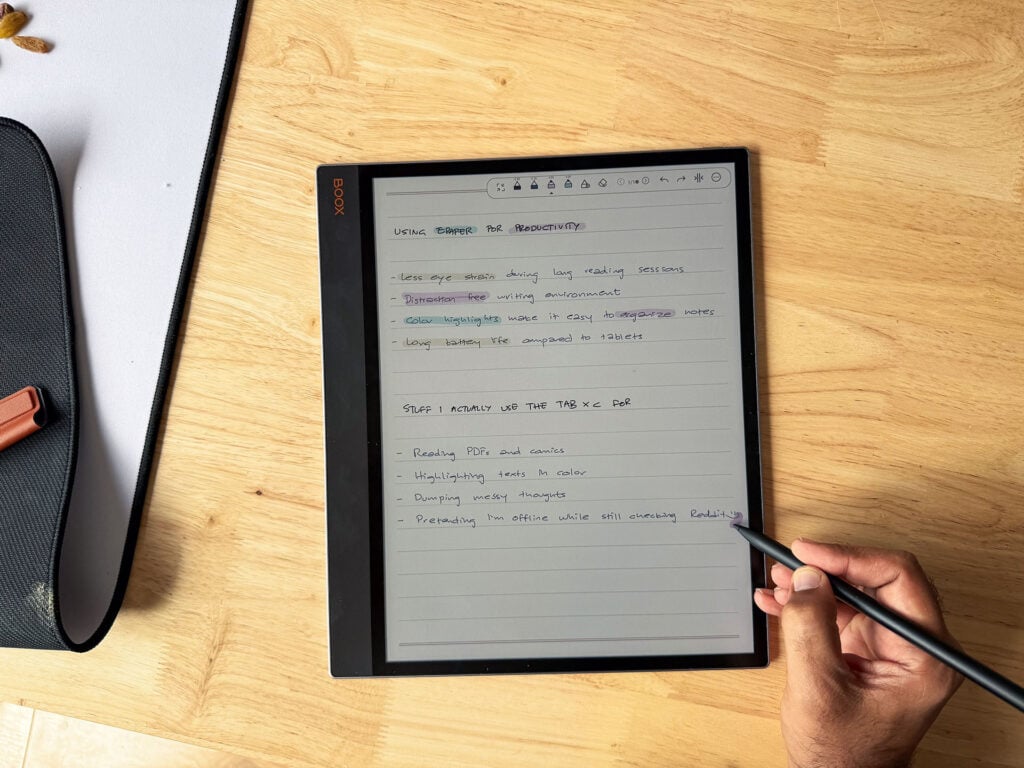 BOOX
USING EPAPER FOR PRODUCTIVITY
- Less eye strain during long reading sessions
- Distraction free writing environment
- Color highlights make it easy to organize notes
- Long battery life compared to tablets
STUFF I ACTUALLY USE THE TAB X C FOR
- Reading PDFs and comics
- Highlighting texts in color
- Dumping messy thoughts
- Pretending I'm offline while still checking Reddit